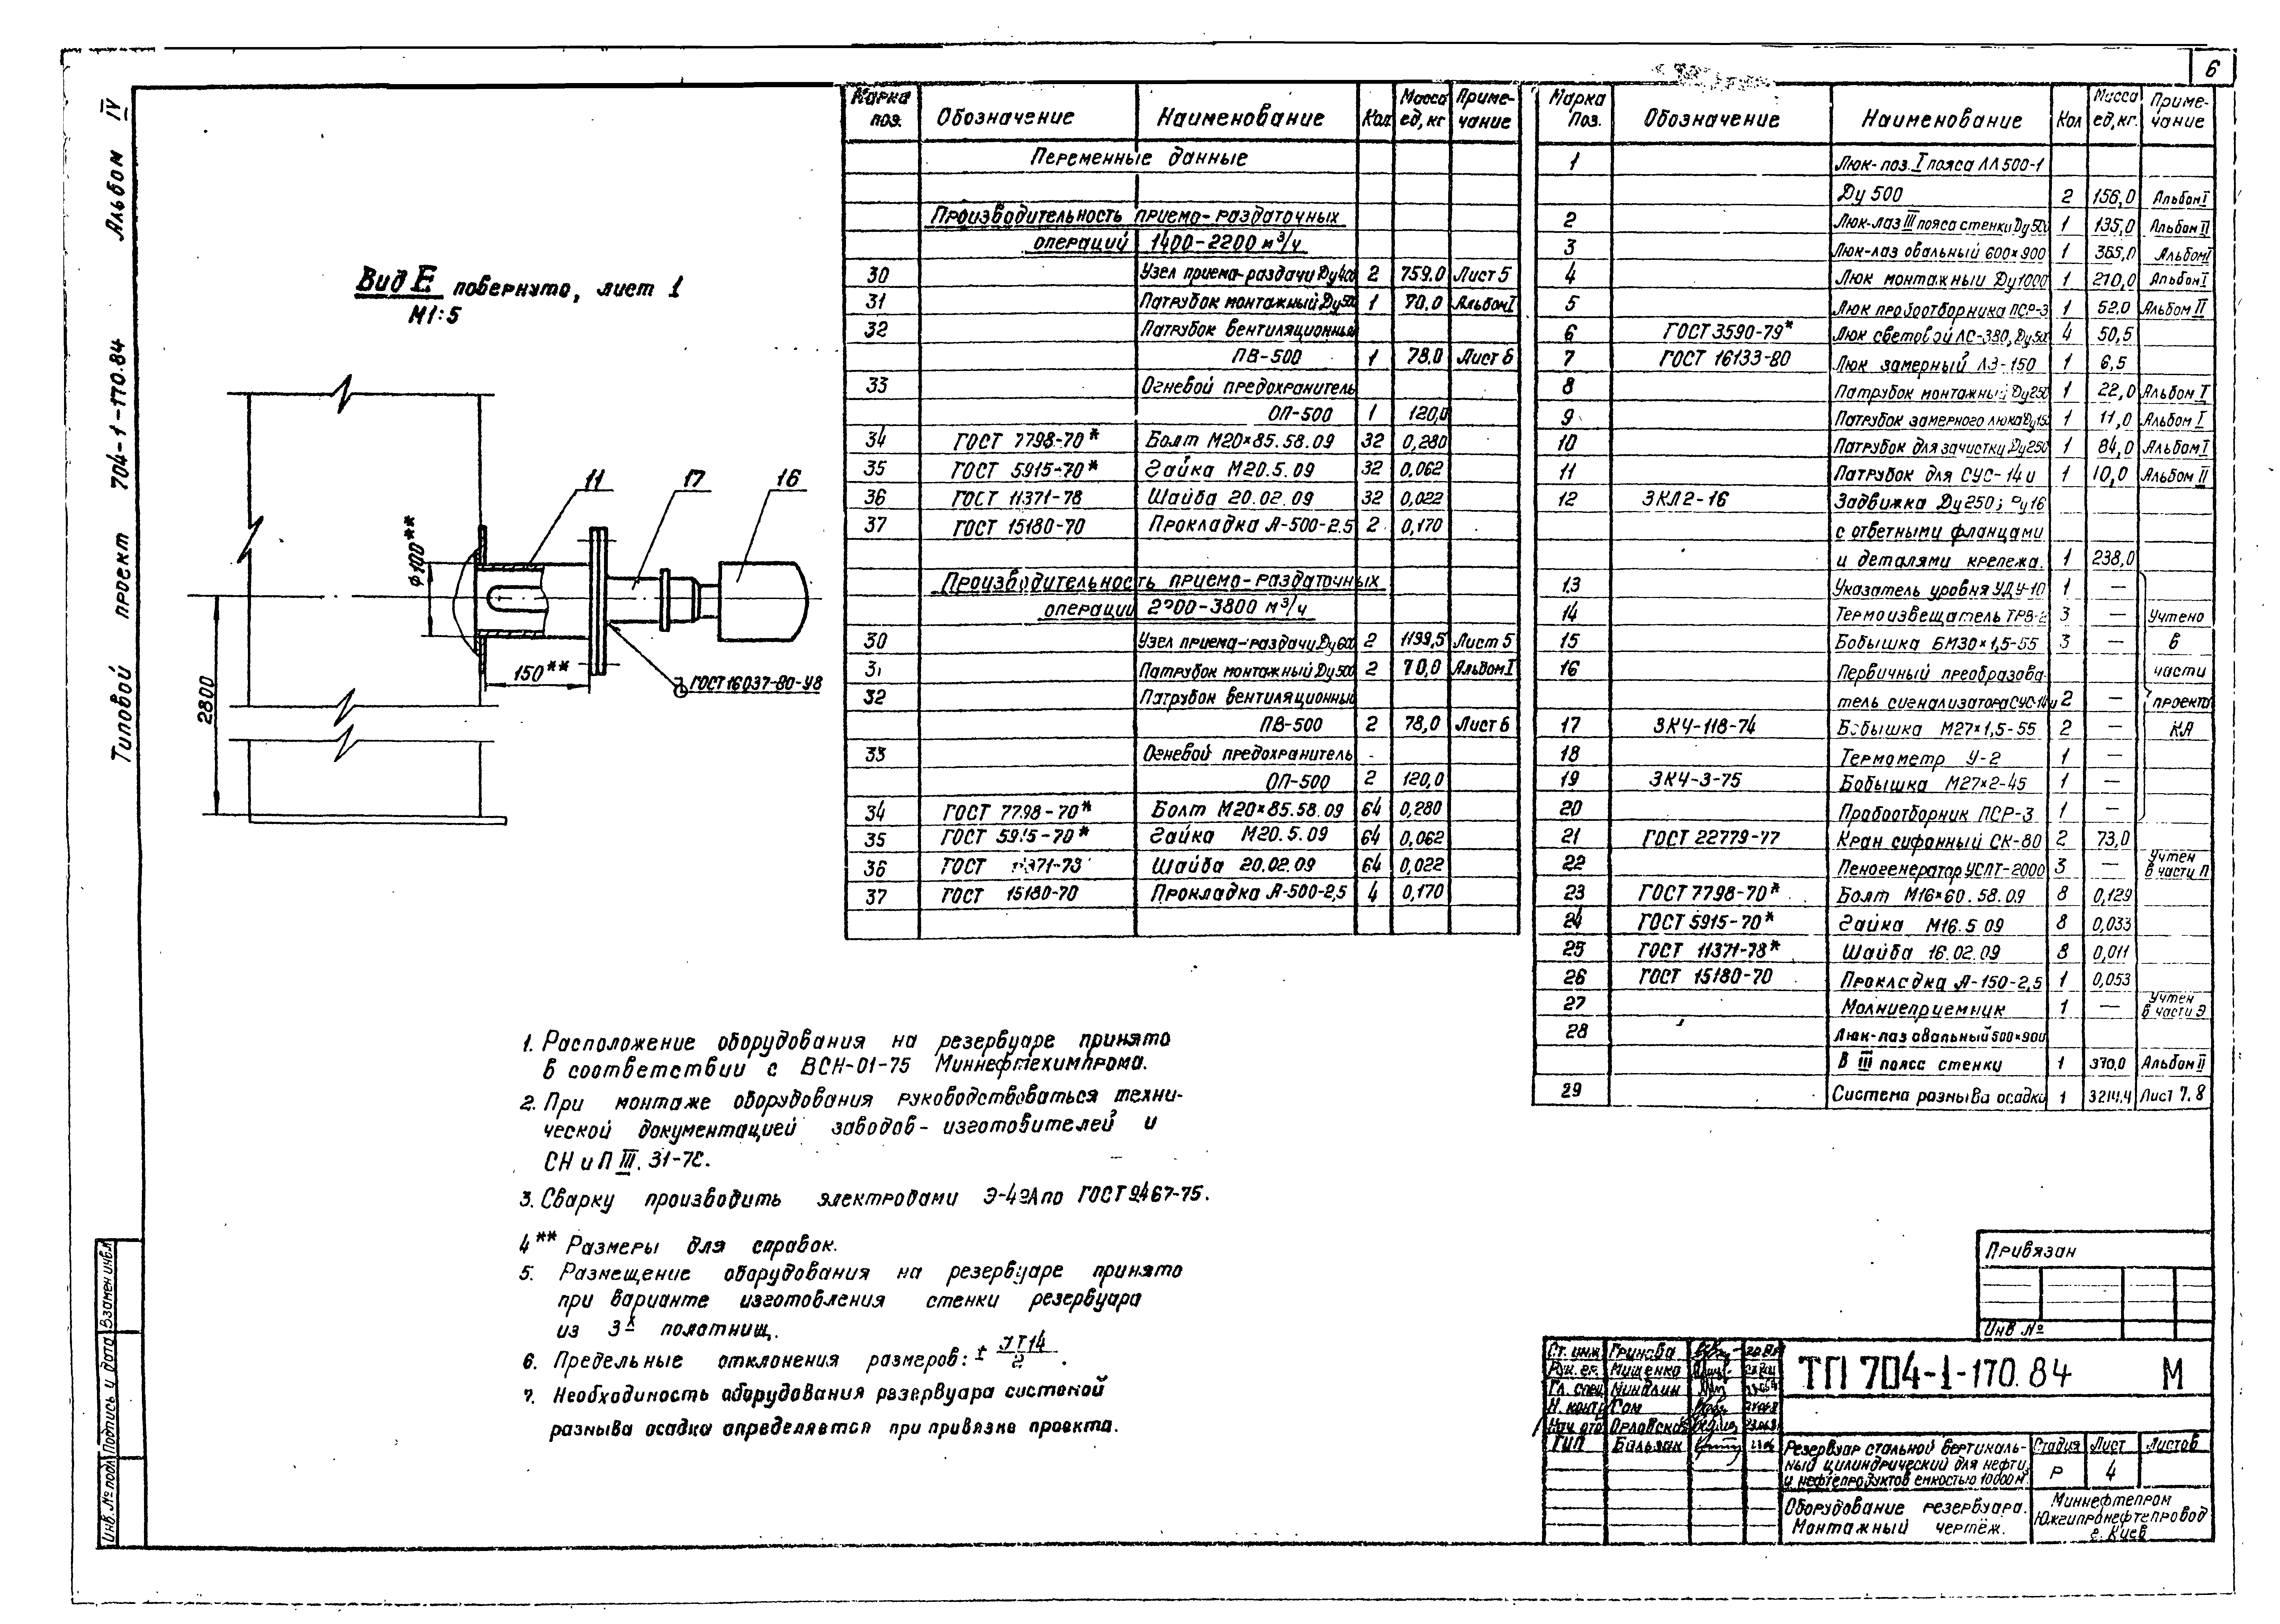 6
Альбом IV
Типовой проект 704-1-170.84
Вид Е повернуто, лист 1
М1:5
11
17
16
ф100**
150**
ГОСТ 16037-80-У8
2800
Марка поз. Обозначение Наименование Кол Масса ед, кг Примечание
Переменные данные
Производительность приемо-раздаточных
операций 1400-2200 м³/ч
30 Узел приема-раздачи Ду400 2 759.0 Лист 5
31 Патрубок монтажный Ду500 1 70.0 Альбом I
32 Патрубок вентиляционный
ПВ-500 1 78,0 Лист 6
33 Огневой предохранитель
ОП-500 1 120,0
34 ГОСТ 7798-70* Болт М20×85.58.09 32 0,280
35 ГОСТ 5915-70* Гайка М20.5.09 32 0,062
36 ГОСТ 11371-78 Шайба 20.02.09 32 0,022
37 ГОСТ 15180-70 Прокладка А-500-2.5 2 0,170
Производительность приемо-раздаточных
операций 2200-3800 м³/ч
30 Узел приема-раздачи Ду600 2 1199,5 Лист 5
31 Патрубок монтажный Ду500 2 70,0 Альбом I
32 Патрубок вентиляционный
ПВ-500 2 78,0 Лист 6
33 Огневой предохранитель
ОП-500 2 120,0
34 ГОСТ 7798-70* Болт М20×85.58.09 64 0,280
35 ГОСТ 5915-70* Гайка М20.5.09 64 0,062
36 ГОСТ 11371-78 Шайба 20.02.09 64 0,022
37 ГОСТ 15180-70 Прокладка А-500-2,5 4 0,170
Марка Поз. Обозначение Наименование Кол Масса ед, кг. Примечание
1 Люк-поз. I пояса ЛЛ500-1
Ду 500 2 156,0 Альбом I
2 Люк-лаз III пояса стенки Ду500 1 135,0 Альбом II
3 Люк-лаз овальный 600×900 1 365,0 Альбом I
4 Люк монтажный Ду1000 1 210,0 Альбом I
5 Люк пробоотборника ПСР-3 1 52,0 Альбом II
6 ГОСТ 3590-79* Люк световой ЛС-380, Ду500 4 50,5
7 ГОСТ 16133-80 Люк замерный ЛЗ-150 1 6,5
8 Патрубок монтажный Ду250 1 22,0 Альбом I
9 Патрубок замерного люка Ду150 1 11,0 Альбом I
10 Патрубок для зачистки Ду250 1 84,0 Альбом I
11 Патрубок для СУС-14и 1 10,0 Альбом II
12 ЗКЛ2-16 Задвижка Ду250; Ру16
с ответными фланцами
и деталями крепежа. 1 238,0
13 Указатель уровня УДУ-10 1 —
14 Термоизвещатель ТРВ-2 3 — Учтено
15 Бобышка БМ30×1,5-55 3 — в
16 Первичный преобразова- части
тель сигнализатора СУС-14и 2 — проекта
17 ЗКЧ-118-74 Бобышка М27×1,5-55 2 — КА
18 Термометр У-2 1 —
19 ЗКЧ-3-75 Бобышка М27×2-45 1 —
20 Пробоотборник ПСР-3 1 —
21 ГОСТ 22779-77 Кран сифонный СК-80 2 73,0
22 Пеногенератор УСПТ-2000 3 — Учтен в части П
23 ГОСТ 7798-70* Болт М16×60.58.09 8 0,129
24 ГОСТ 5915-70* Гайка М16.5 09 8 0,033
25 ГОСТ 11371-78* Шайба 16.02.09 8 0,011
26 ГОСТ 15180-70 Прокладка А-150-2,5 1 0,053
27 Молниеприемник 1 — Учтен в части Э
28 Люк-лаз овальный 500×900
в III поясе стенки 1 370.0 Альбом II
29 Система размыва осадка 1 3214.4 Лист 7. 8
1. Расположение оборудования на резервуаре принято
в соответствии с ВСН-01-75 Миннефтехимпрома.
2. При монтаже оборудования руководствоваться техни-
ческой документацией заводов-изготовителей и
СНиП III. 31-78.
3. Сварку производить электродами Э-42А по ГОСТ 9467-75.
4** Размеры для справок.
5. Размещение оборудования на резервуаре принято
при варианте изготовления стенки резервуара
из 3х полотнищ.
6. Предельные отклонения размеров: ± JT14/2.
7. Необходимость оборудования резервуара системой
размыва осадка определяется при привязке проекта.
Привязан
Инв №
Взамен инв.
Подпись и дата
Инв. № подл
Ст. инж Гринева
Рук. гр. Мищенко
Гл. спец Миналин
Н. контр Сом
Нач отд Орловский
ГИП Бальзак
ТП 704-1-170.84 М
Резервуар стальной вертикаль-
ный цилиндрический для нефти
и нефтепродуктов емкостью 10000 м³
Стадия Лист Листов
Р 4
Оборудование резервуара.
Монтажный чертёж.
Миннефтепром
Южгипронефтепровод
г. Киев